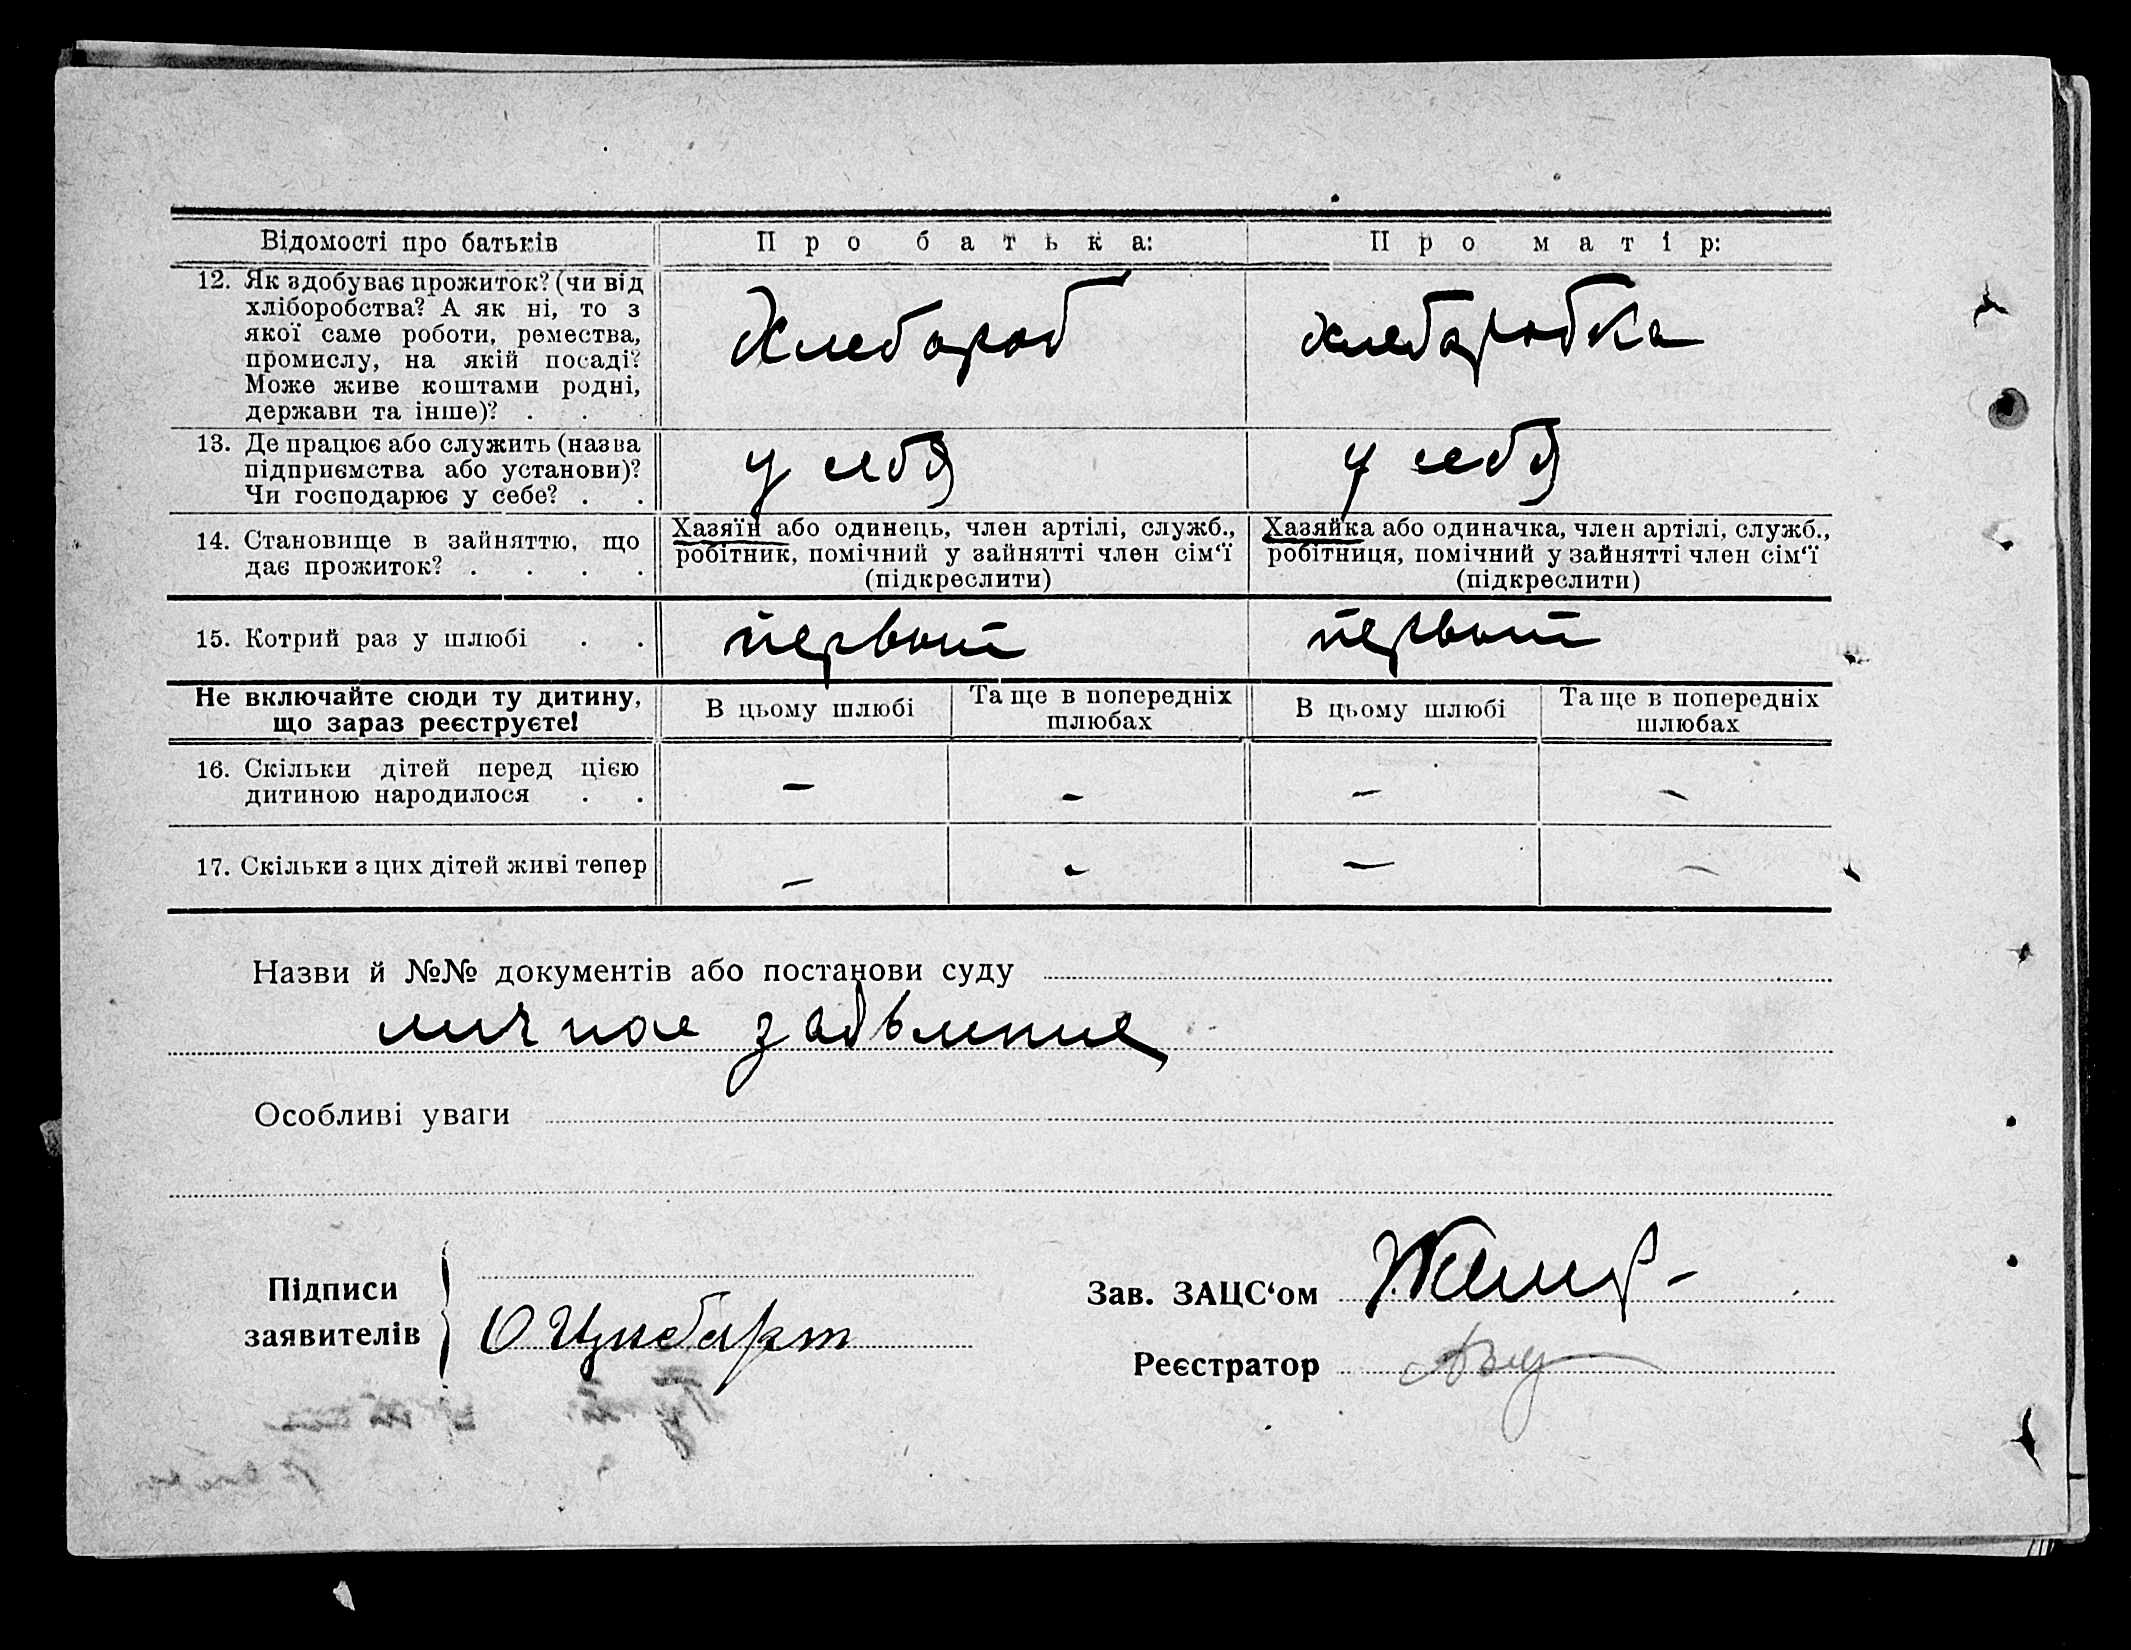 Відомості про батьків
Про батька:
Про матір:
12. Як здобуває прожиток? (чи від
хліборобства? А як ні, то з
якої саме роботи, ремества,
промислу, на якій посаді?
Може живе коштами родні,
держави та інше)? . . .
Хлебороб
хлеборобка
13. Де працює або служить (назва
підприємства або установи)?
Чи господарює у себе? . .
у себя
у себя
14. Становище в зайняттю, що
дає прожиток? . . . .
Хазяїн або одинець, член артілі, служб.,
робітник, помічний у зайнятті член сім‘ї
(підкреслити)
Хазяйка або одиначка, член артілі, служб.,
робітниця, помічний у зайнятті член сім‘ї
(підкреслити)
15. Котрий раз у шлюбі . .
первый
первый
Не включайте сюди ту дитину,
що зараз реєструєте!
В цьому шлюбі
Та ще в попередніх
шлюбах
В цьому шлюбі
Та ще в попередніх
шлюбах
16. Скільки дітей перед цією
дитиною народилося . .
– – – –
17. Скільки з цих дітей живі тепер
– – – –
Назви й №№ документів або постанови суду
личное заявление
Особливі уваги
Підписи
заявителів
Зав. ЗАЦС‘ом
Реєстратор